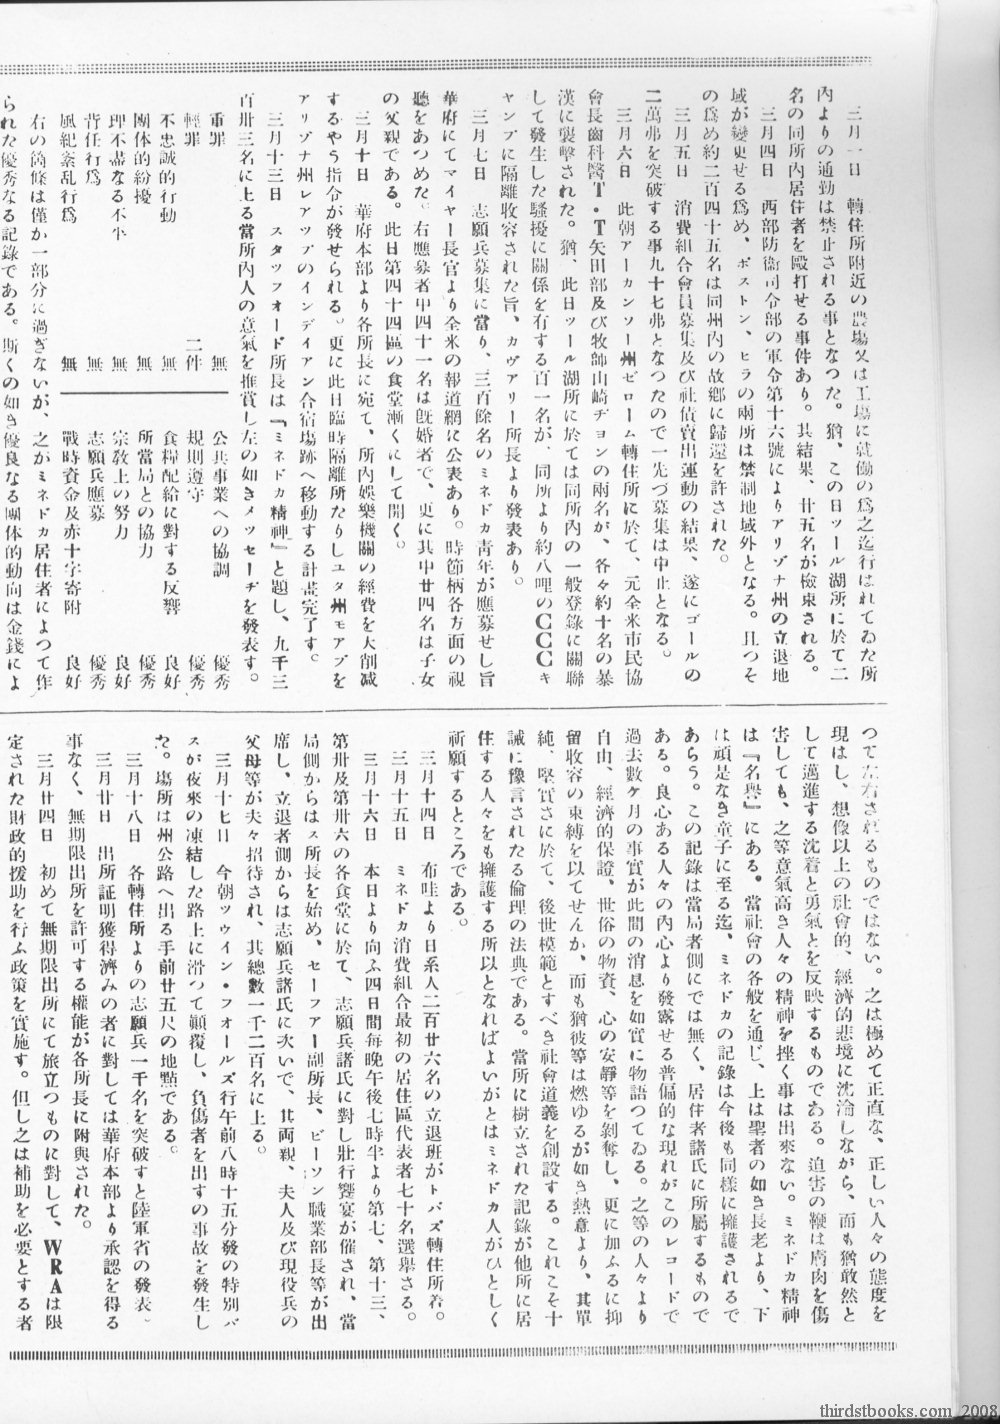 三月一日　轉住所附近の農場又は工場に就働の爲之迄行はれてゐた所
內よりの通勤は禁止される事となつた。猶、この日ツール湖所に於て二
名の同所內居住者を毆打せる事件あり。其結果、廿五名が檢束される。
三月四日　西部防衞司令部の軍令第十六號によりアリゾナ州の立退地
域が變更せる爲め、ポストン、ヒラの兩所は禁制地域外となる。且つそ
の爲め約二百四十五名は同州內の故鄉に歸還を許された。
三月五日　消費組合會員募集及び社債賣出運動の結果、遂にゴールの
二萬弗を突破する事九十七弗となつたので一先づ募集は中止となる。
三月六日　此朝アーカンソー州ゼローム轉住所に於て、元全米市民協
會長齒科醫T・T矢田部及び牧師山崎ヂョンの兩名が、各々約十名の暴
漢に襲擊された。猶、此日ツール湖所に於ては同所內の一般登錄に關聯
して發生した騷擾に關係を有する百一名が、同所より約八哩のCCCキ
ャンプに隔離收容された旨、カヴアリー所長より發表あり。
三月七日　志願兵募集に當り、三百餘名のミネドカ靑年が應募せし旨
華府にてマイヤー長官より全米の報道網に公表あり。時節柄各方面の視
聽をあつめた。右應募者中四十一名は旣婚者で、更に其中廿四名は子女
の父親である。此日第四十四區の食堂漸くにして開く。
三月十日　華府本部より各所長に宛て、所內娛樂機關の經費を大削減
するやう指令が發せられる。更に此日臨時隔離所たりしユタ州モアブを
アリゾナ州レアツプのインデイアン合宿場跡へ移動する計畫完了す。
三月十三日　スタッフオード所長は『ミネドカ精神』と題し、九千三
百卅三名に上る當所內人の意氣を推賞し左の如きメツセーヂを發表す。
重罪　無　公共事業への協調　優秀
輕罪　二件　規則遵守　優秀
不忠誠的行動　無　食糧配給に對する反響　良好
團体的紛擾　無　所當局との協力　優秀
理不盡なる不平　無　宗敎上の努力　良好
背任行爲　無　志願兵應募　優秀
風紀紊乱行爲　無　戰時資金及赤十字寄附　良好
右の箇條は僅か一部分に過ぎないが、之がミネドカ居住者によつて作
られた優秀なる記錄である。斯くの如き優良なる團体的動向は金錢によ
つて左右されるものではない。之は極めて正直な、正しい人々の態度を
現はし、想像以上の社會的、經濟的悲境に沈淪しながら、而も猶敢然と
して邁進する沈着と勇氣とを反映するものである。迫害の鞭は膚肉を傷
害しても、之等意氣高き人々の精神を挫く事は出來ない。ミネドカ精神
は『名譽』にある。當社會の各般を通じ、上は聖者の如き長老より、下
は頑是なき童子に至る迄、ミネドカの記錄は今後も同樣に擁護されるで
あらう。この記錄は當局者側にでは無く、居住者諸氏に所屬するもので
ある。良心ある人々の內心より發露せる普偏的な現れがこのレコードで
過去數ケ月の事實が此間の消息を如實に物語つてゐる。之等の人々より
自由、經濟的保證、世俗の物資、心の安靜等を剝奪し、更に加ふるに抑
留收容の束縛を以てせんか、而も猶彼等は燃ゆるが如き熱意より、其單
純、堅實さに於て、後世模範とすべき社會道義を創設する。これこそ十
誡に豫言されたる倫理の法典である。當所に樹立された記錄が他所に居
住する人々をも擁護する所以となればよいがとはミネドカ人がひとしく
祈願するところである。
三月十四日　布哇より日系人二百廿六名の立退班がトパズ轉住所着。
三月十五日　ミネドカ消費組合最初の居住區代表者七十名選擧さる。
三月十六日　本日より向ふ四日間每晩午後七時半より第七、第十三、
第卅及第卅六の各食堂に於て、志願兵諸氏に對し壯行饗宴が催され、當
局側からはス所長を始め、セーフアー副所長、ビーソン職業部長等が出
席し、立退者側からは志願兵諸氏に次いで、其両親、夫人及び現役兵の
父母等が夫々招待され、其總數一千二百名に上る。
三月十七日　今朝ツウイン・フオールズ行午前八時十五分發の特別バ
スが夜來の凍結した路上に滑つて顚覆し、負傷者を出すの事故を發生し
た。塲所は州公路へ出る手前廿五尺の地點である。
三月十八日　各轉住所よりの志願兵一千名を突破すと陸軍省の發表。
三月廿日　出所証明獲得濟みの者に對しては華府本部より承認を得る
事なく、無期限出所を許可する權能が各所長に附與された。
三月廿四日　初めて無期限出所にて旅立つものに對して、WRAは限
定された財政的援助を行ふ政策を實施す。但し之は補助を必要とする者
thirdstbooks.com 2008